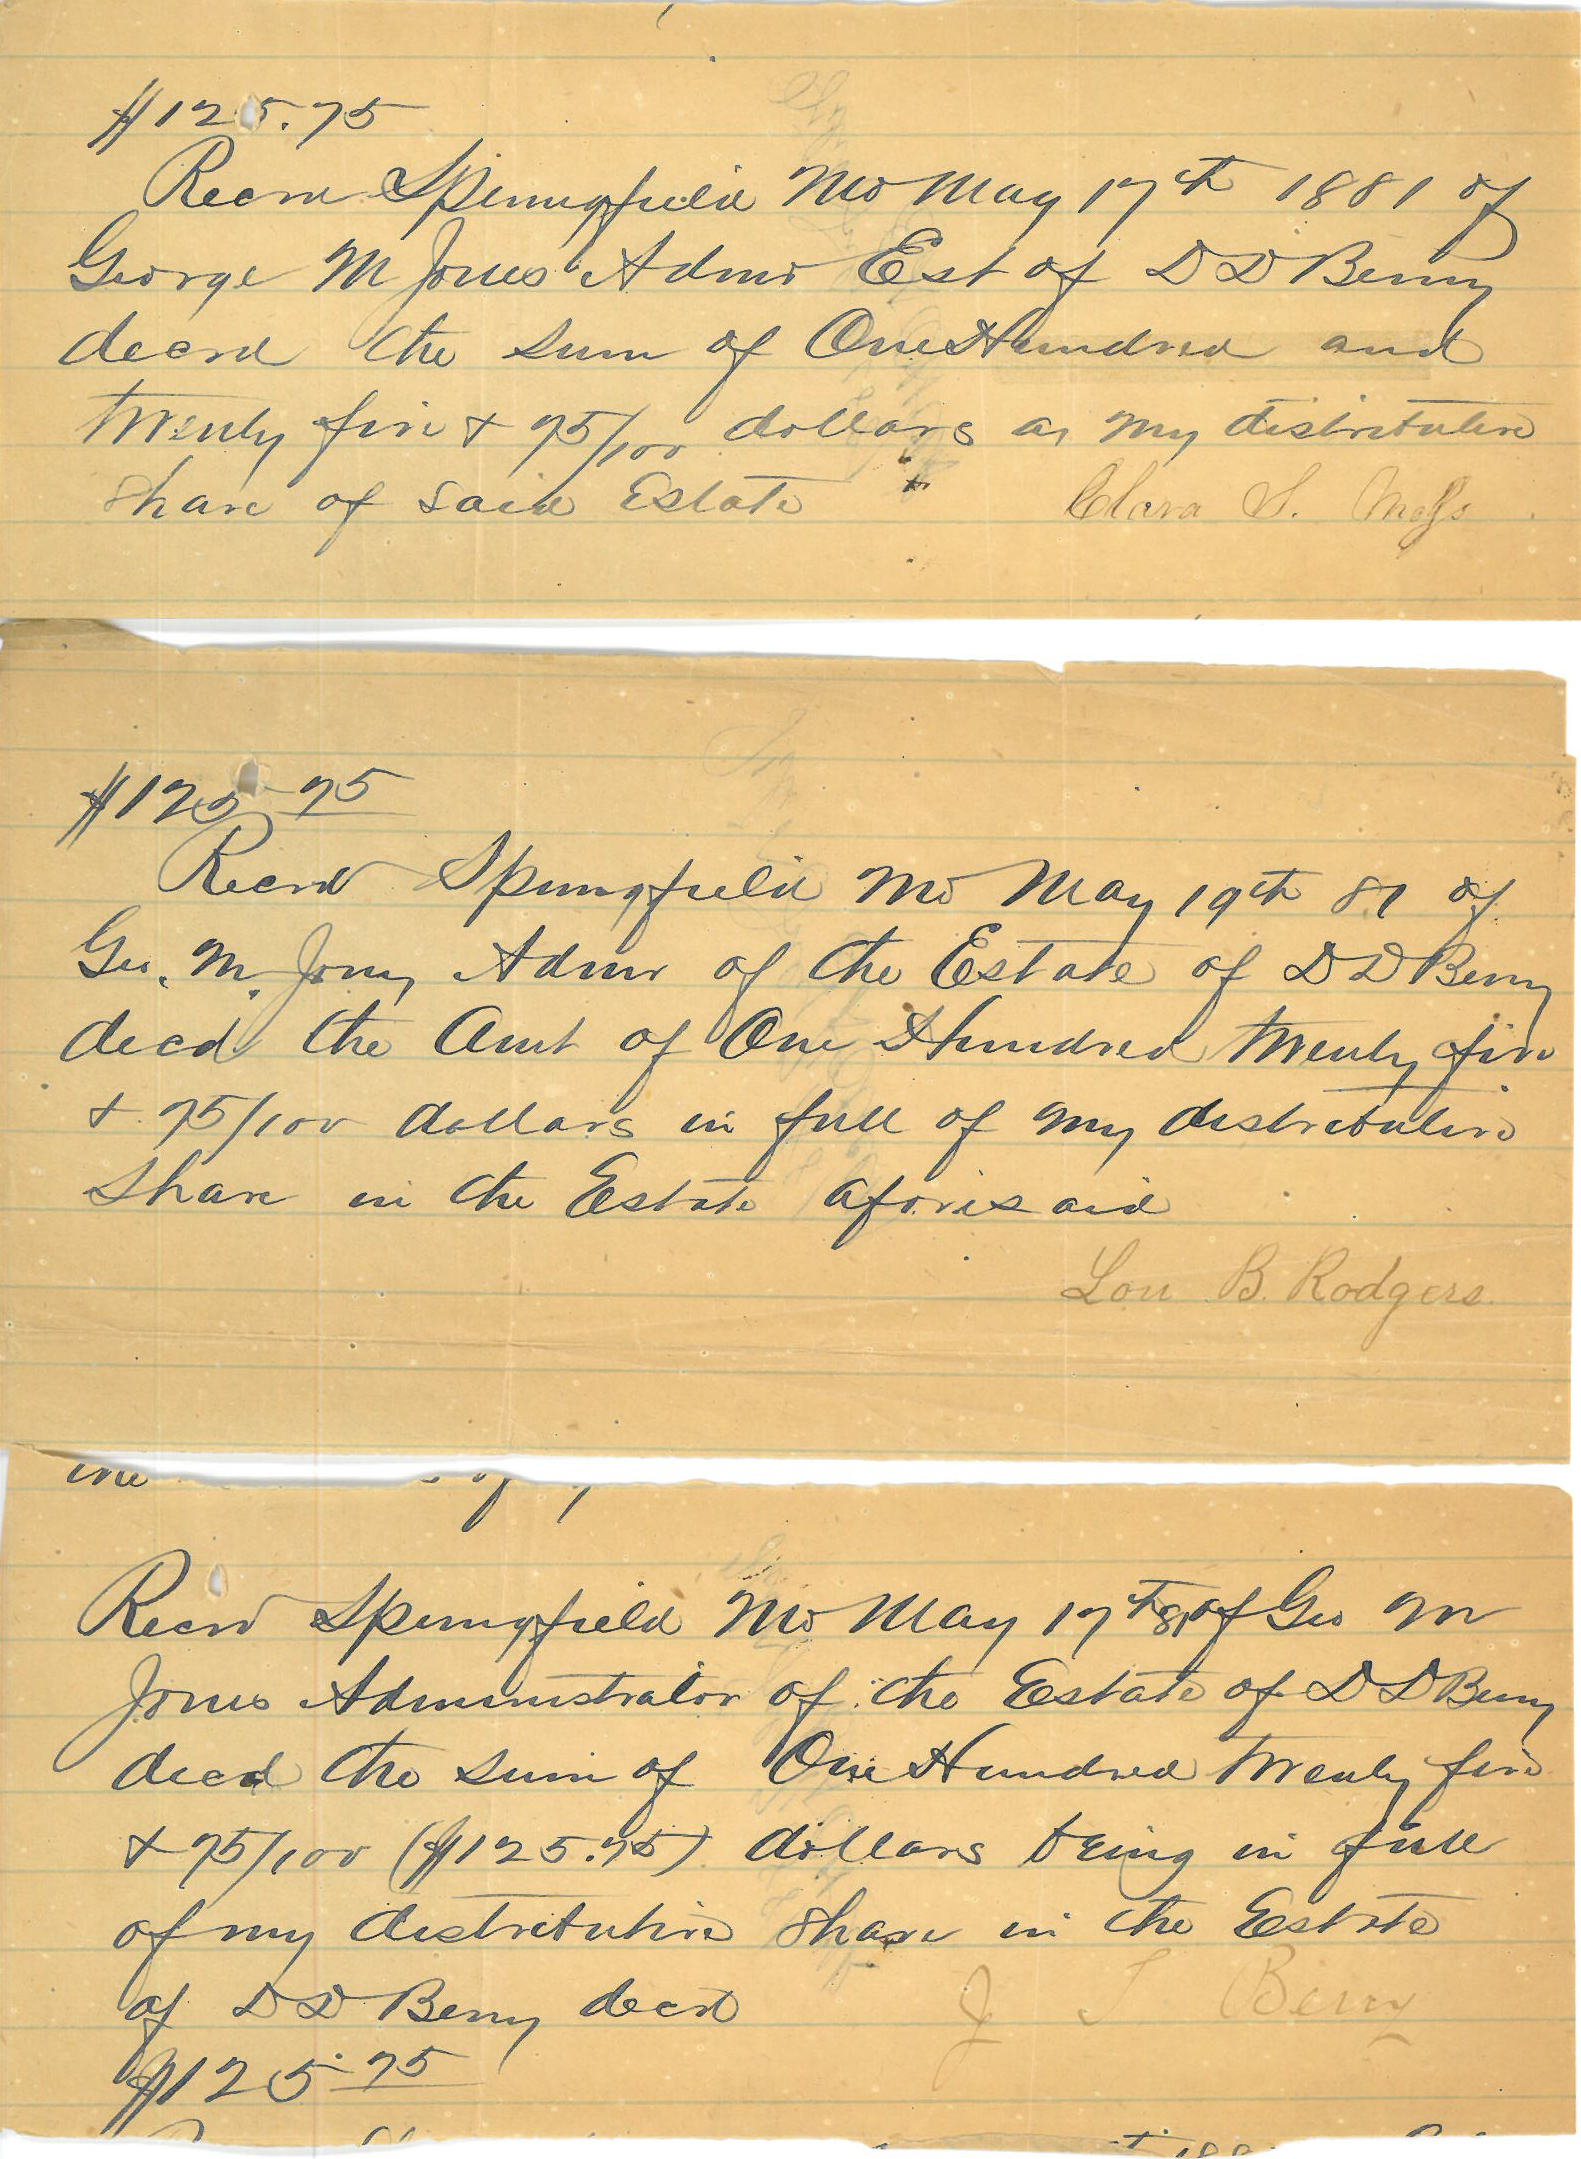 $125.75
Recvd Springfield Mo May 17th 1881 of
George M Jones Admr Est of D D Berry
decd the sum of One Hundred and
twenty five + 75/100 dollars as my distributive
share of said Estate Clara S.
$125 75
Recvd Springfield Mo May 19th 81 of
Geo. M. Jones Admr of the Estate of D D Berry
decd the Amt of One Hundred twenty five
+ 75/100 dollars in full of my distributive
share in the Estate aforesaid
Lou B. Rodgers
Recvd Springfield Mo May 17th 81 of Geo M
Jones Administrator of the Estate of D D Berry
decd the sum of One Hundred twenty five
+ 75/100 ($125.75) dollars being in full
of my distributive share in the Estate
of D D Berry decd J T Berry
$125.75